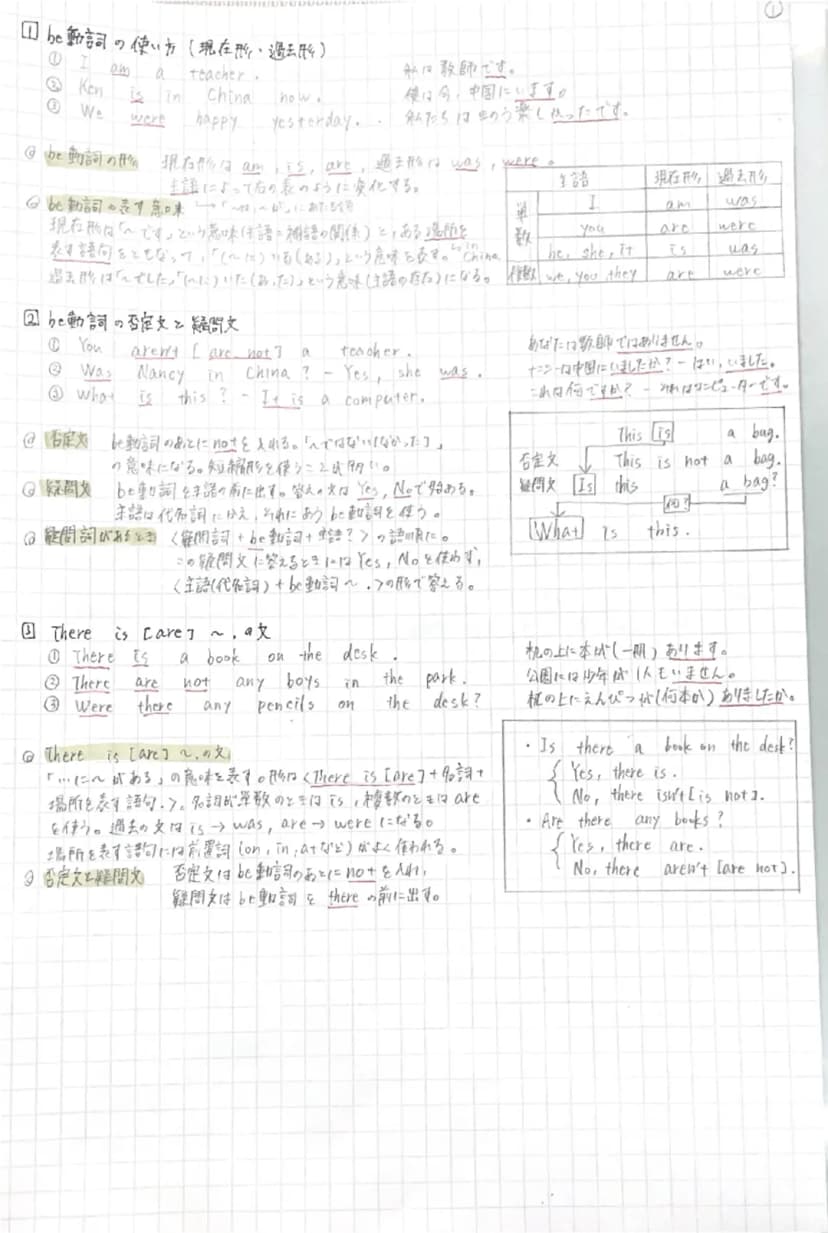 ①
1 be動詞の使い方(現在形・過去形)
① I am a teacher. 私は教師です。
② Ken is in China now. 僕は今、中国にいます。
③ We were happy yesterday. 私たちはきのう楽しかったです。
be動詞の形 現在形は am, is, are, 過去形は was, were。
主語によって右の表のように変化する。
主語 現在形 過去形
単数 I am was
you are were
he, she, it is was
複数 we, you, they are were
be動詞の表す意味
現在形は「~です」という意味(主語=補語の関係)と、ある場所を
表す語句をともなって、「(~に)いる(ある)」という意味を表す。 in China
過去形は「~でした」、「(~に)いた(あった)」という意味(主語の存在)になる。
2 be動詞の否定文と疑問文
① You aren't [are not] a teacher. あなたは教師ではありません。
② Was Nancy in China? - Yes, she was. ナンシーは中国にいましたか? - はい、いました。
③ What is this? - It is a computer. これは何ですか? - それはコンピューターです。
否定文 be動詞のあとにnotを入れる。「~ではない[なかった]」
の意味になる。短縮形を使うことが多い。
疑問文 be動詞を主語の前に出す。答えの文は Yes, Noで始める。
主語は代名詞にかえ、それにあうbe動詞を使う。
疑問詞があるとき 〈疑問詞+be動詞+主語?〉の語順に。
この疑問文に答えるときにはYes, Noを使わず、
〈主語(代名詞)+be動詞~.〉の形で答える。
This is a bag.
否定文 This is not a bag.
疑問文 Is this a bag?
何?
What is this.
3 There is [are] ~. の文
① There is a book on the desk. 机の上に本が(一冊)あります。
② There are not any boys in the park. 公園には少年が1人もいません。
③ Were there any pencils on the desk? 机の上にえんぴつが(何本か)ありましたか。
There is [are] ~. の文
「…に~がある」の意味を表す。形は〈There is [are]+名詞+
場所を表す語句.〉。名詞が単数のときは is, 複数のときは are
を使う。過去の文は is→was, are→were になる。
場所を表す語句には前置詞(on, in, atなど)がよく使われる。
否定文と疑問文 否定文はbe動詞のあとにnotを入れ、
疑問文はbe動詞を there の前に出す。
・Is there a book on the desk?
Yes, there is.
No, there isn't [is not].
・Are there any books?
Yes, there are.
No, there aren't [are not].